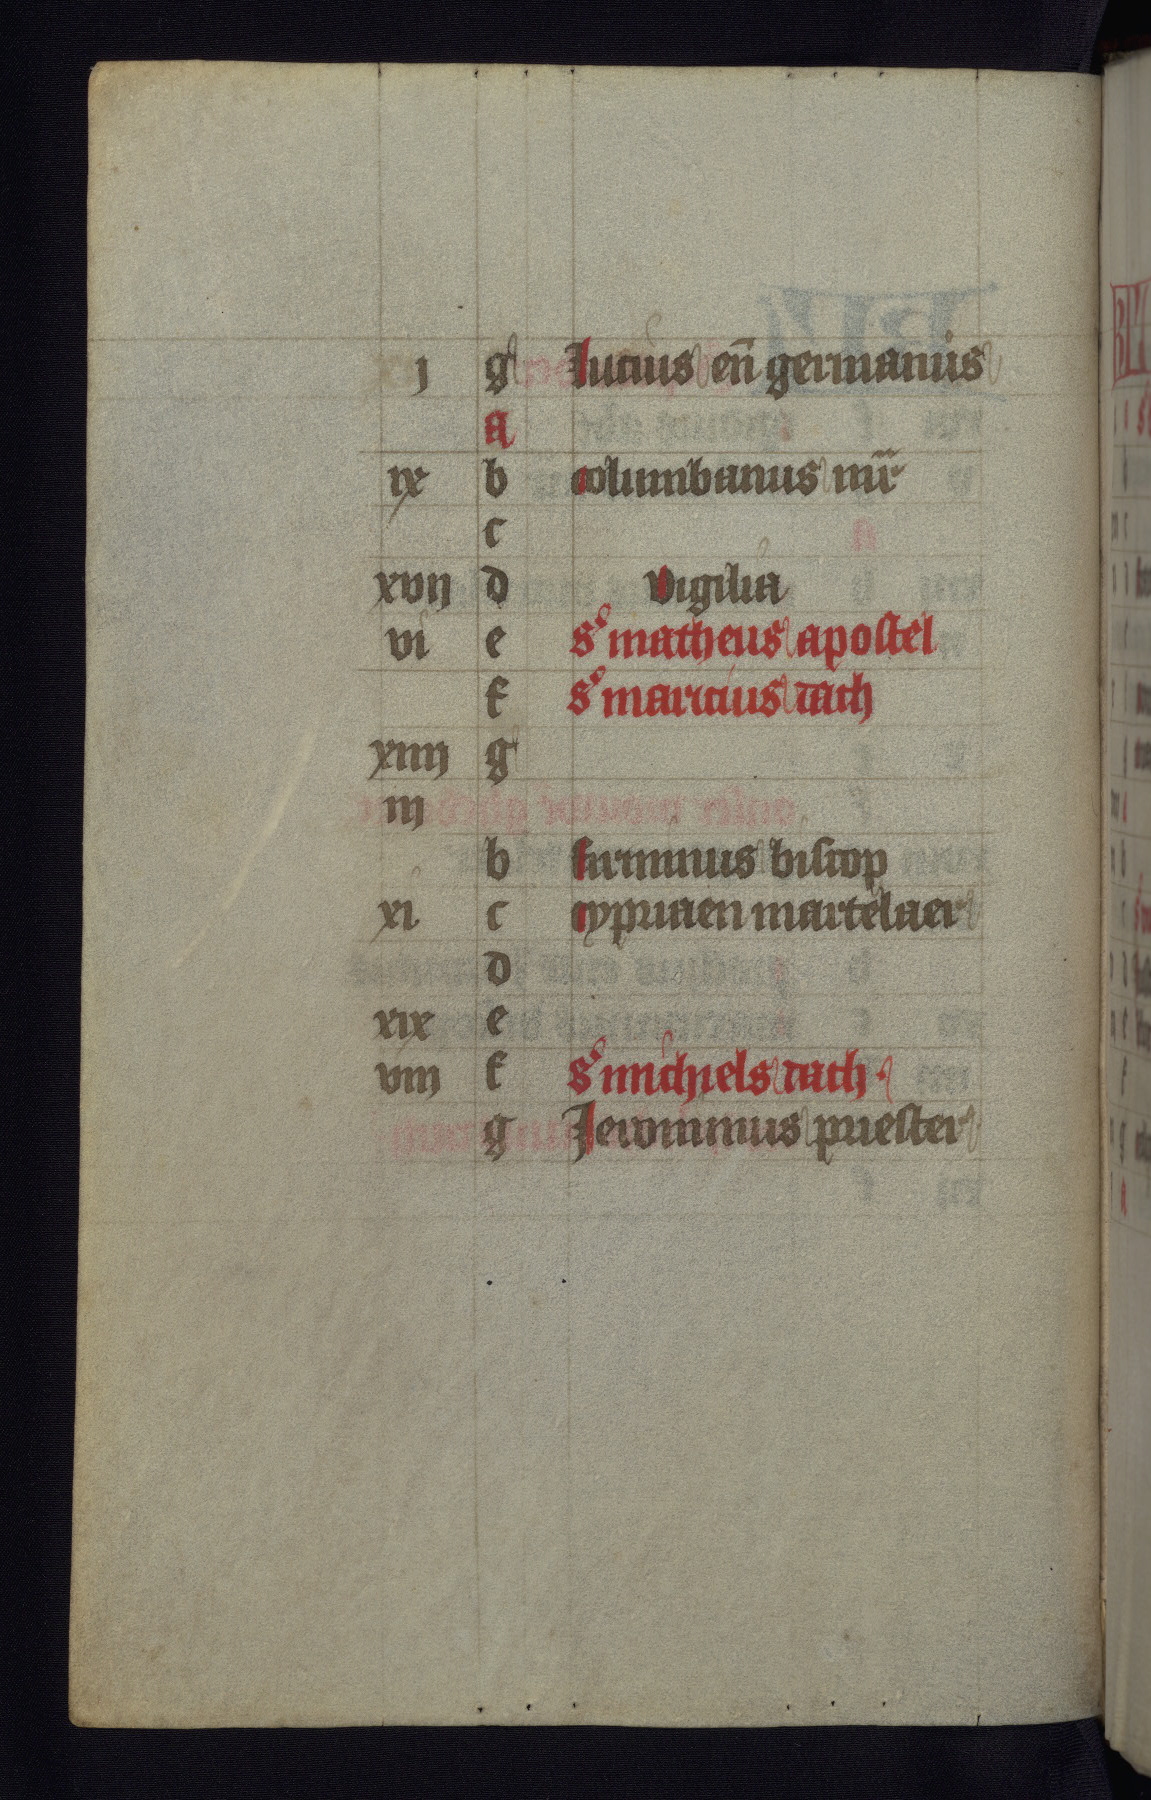 j g Lucius en̄ germanus
a
ix b columbanus mr̄
c
xvij d vigilia
vi e So matheus apostel
f So maricius dach
xiiij g
iij
b firminus biscop
xi c cypriaen martelaer
d
xix e
viij f So michiels dach
g Jeronimus priester